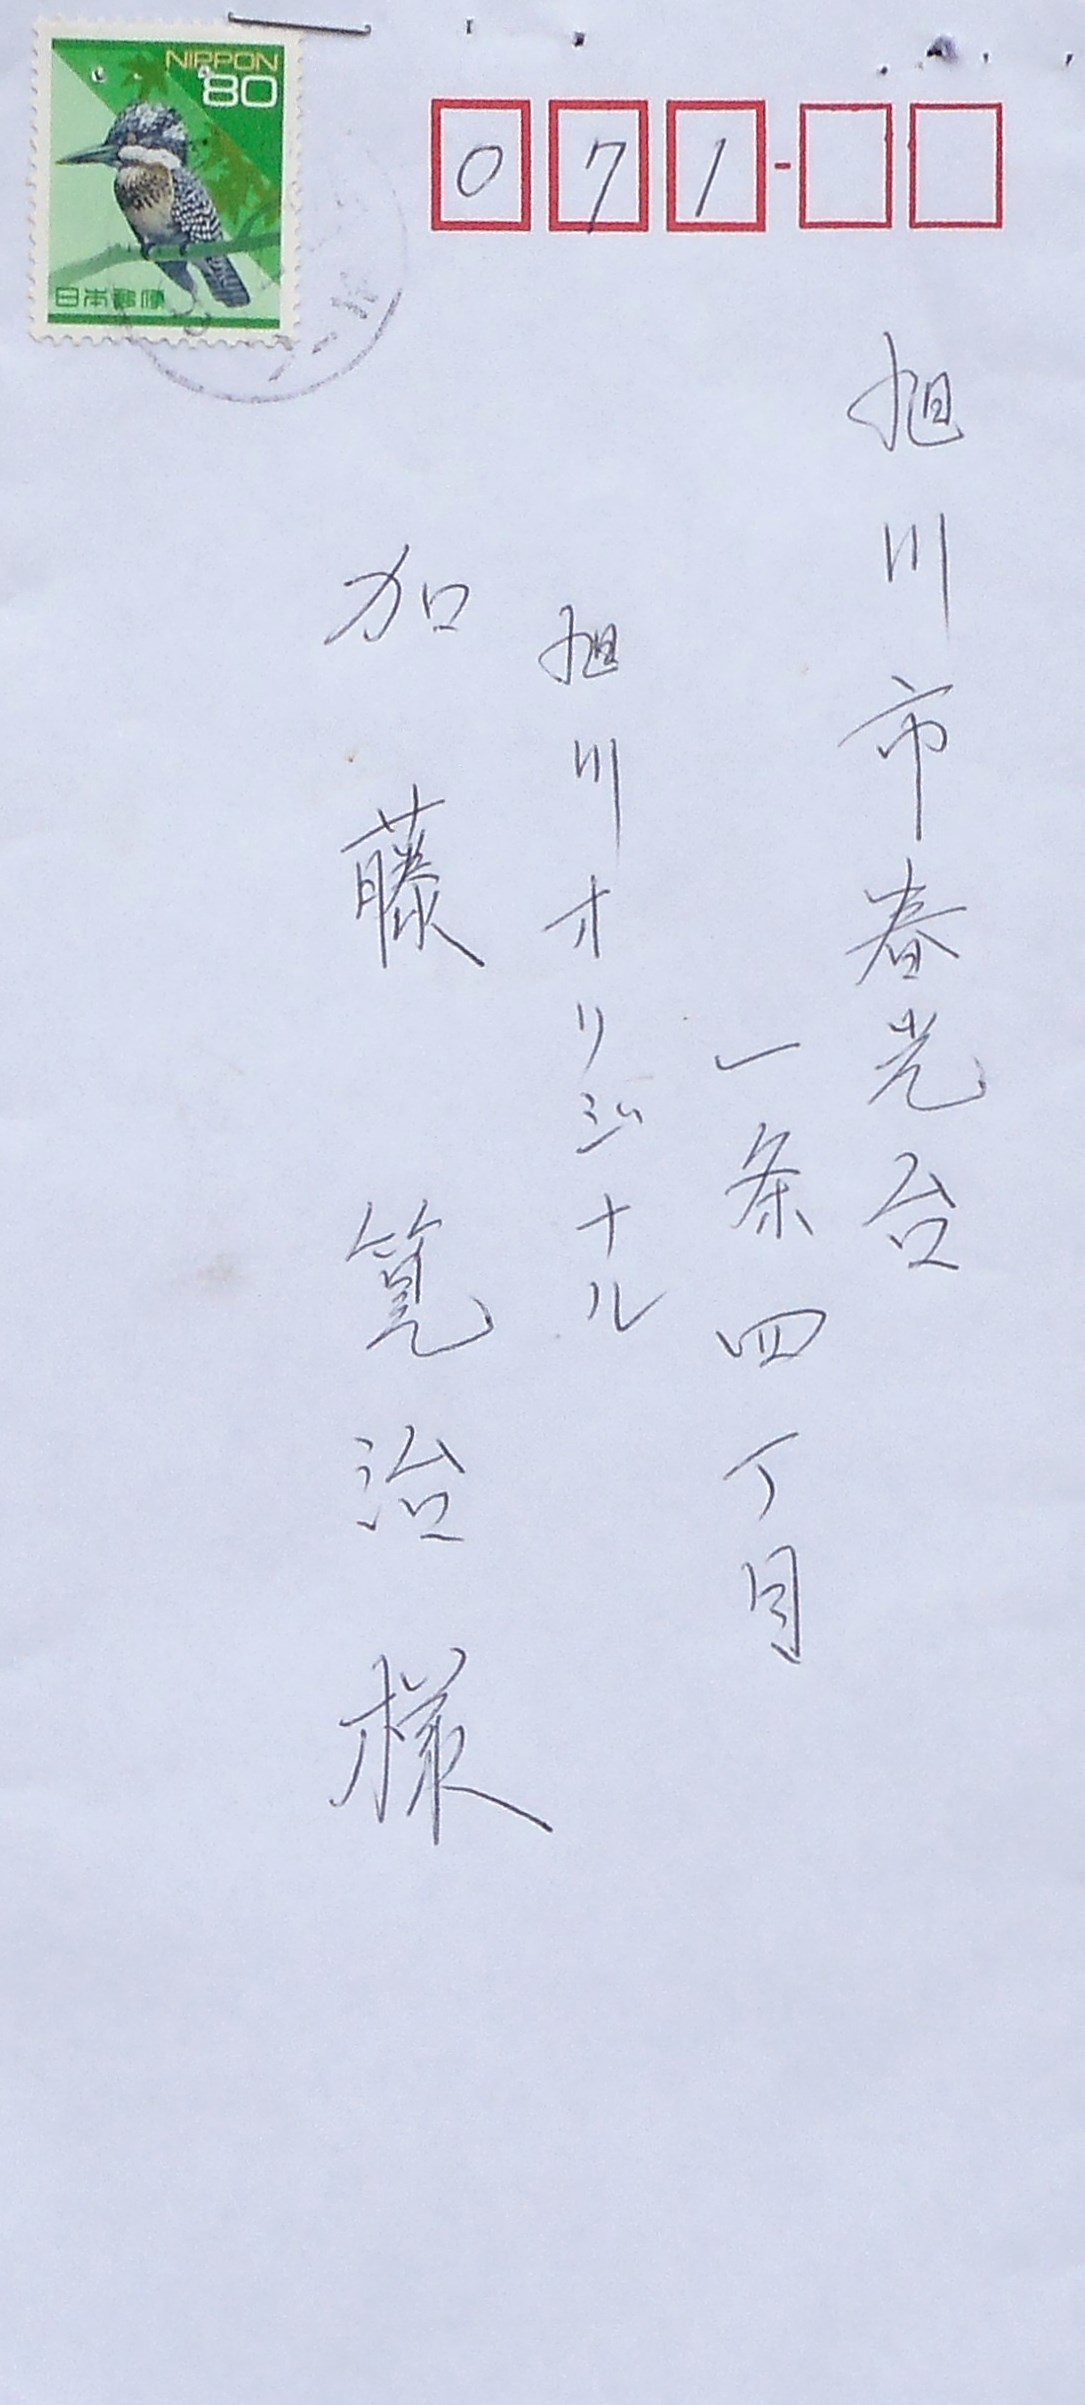 NIPPON
80
日本郵便
071-
旭川市春光台
一条四丁目
旭川オリジナル
加藤筧治様